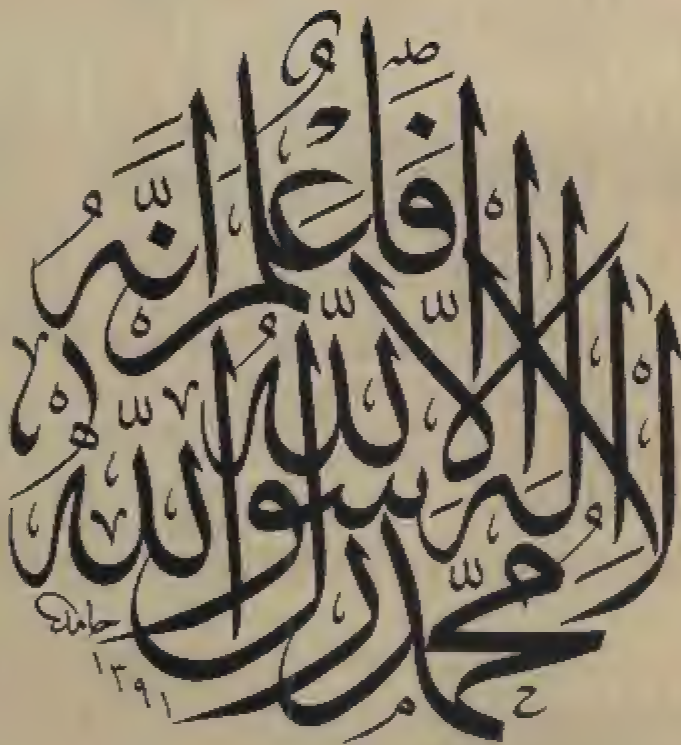 فَاعْلَمْ أَنَّهُ
لَا إِلٰهَ إِلَّا اللّٰهُ
مُحَمَّدٌ رَسُولُ اللّٰهِ
حامد
١٣٩١